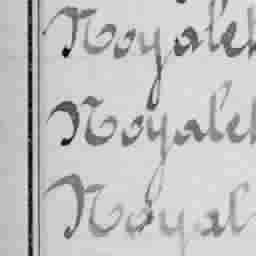 Noyalet
Noyalet
Noyal